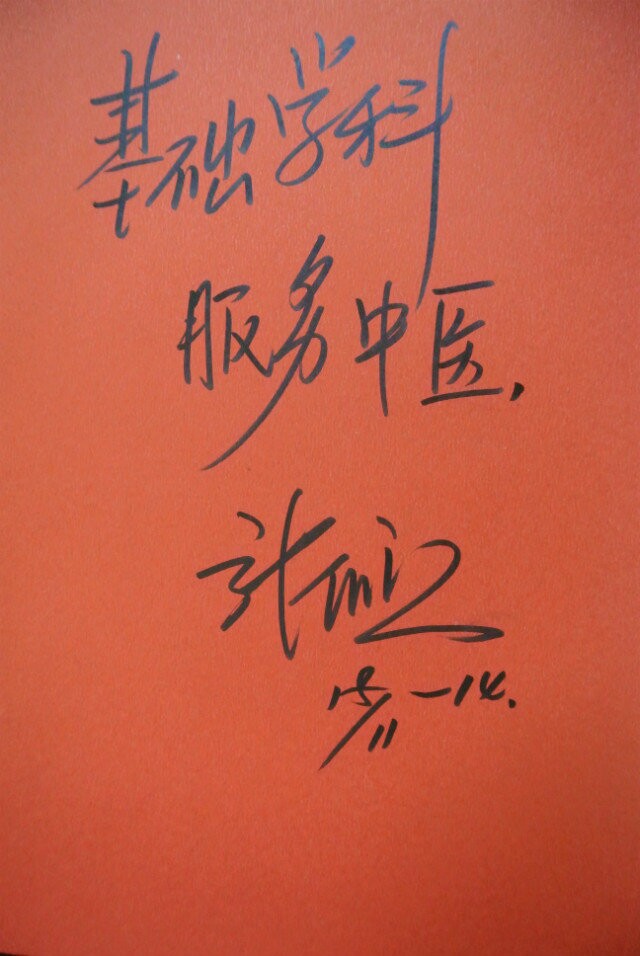 基础学科
服务中医,
张
15/11-14.